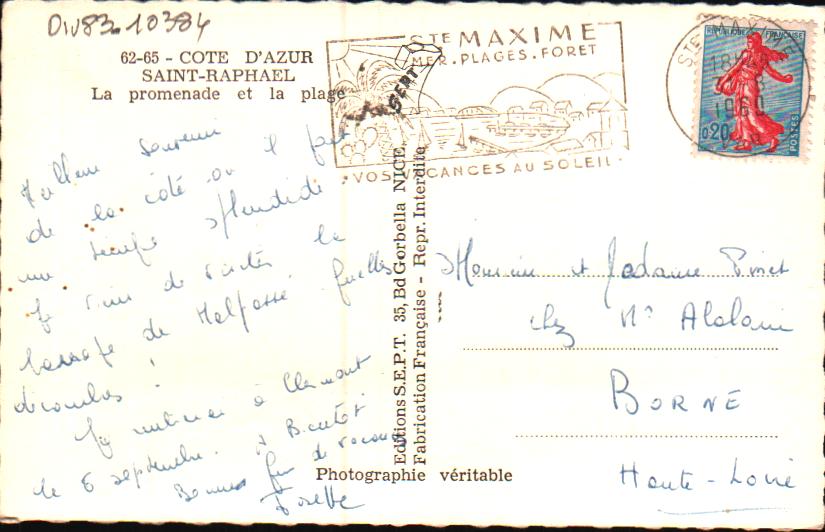 Div83.10384
62-65 - COTE D'AZUR
SAINT-RAPHAEL
La promenade et la plage
STE MAXIME
MER. PLAGES. FORET
VOS VACANCES AU SOLEIL
STE MAXIME
18H
1960
VAR
REPUBLIQUE FRANÇAISE
0,20
POSTES
Meilleur souvenir
de la côte où il fait
un temps splendide
Je viens de visiter le
barrage de Malpasset quelles
décombres !
Je rentrerai à Clermont
le 6 septembre. A Bientôt
Bonne fin de vacances
Josette
Editions S.E.P.T. 35, Bd Gorbella NICE,
Fabrication Française - Repr. Interdite
Photographie véritable
Monsieur et Madame
chez Mr
BORNE
Haute-Loire